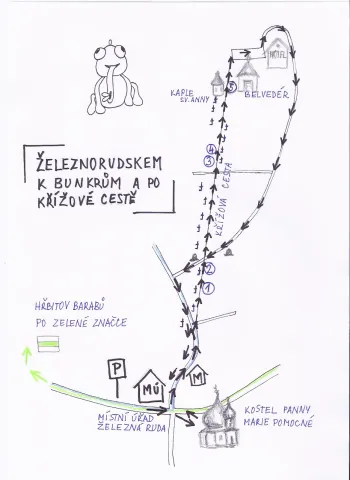 HOTEL
KAPLE
SV. ANNY
5
BELVEDÉR
ŽELEZNORUDSKEM
K BUNKRŮM A PO
KŘÍŽOVÉ CESTĚ
4
3
KŘÍŽOVÁ CESTA
2
1
HŘBITOV BARABŮ
PO ZELENÉ ZNAČCE
P
MÚ
M
MÍSTNÍ ÚŘAD
ŽELEZNÁ RUDA
KOSTEL PANNY
MARIE POMOCNÉ